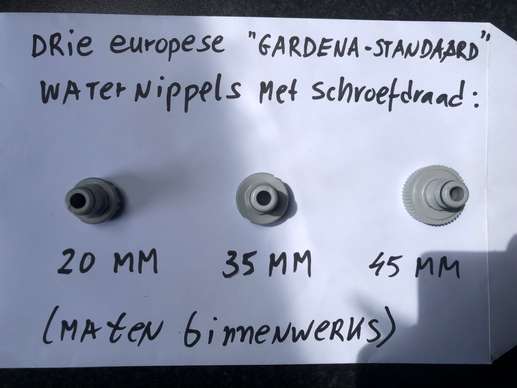 DRie europese "GARDENA-STANDAARD"
WATer Nippels Met Schroefdraad:
20 MM 35 MM 45 MM
(MAten binnenwerks)